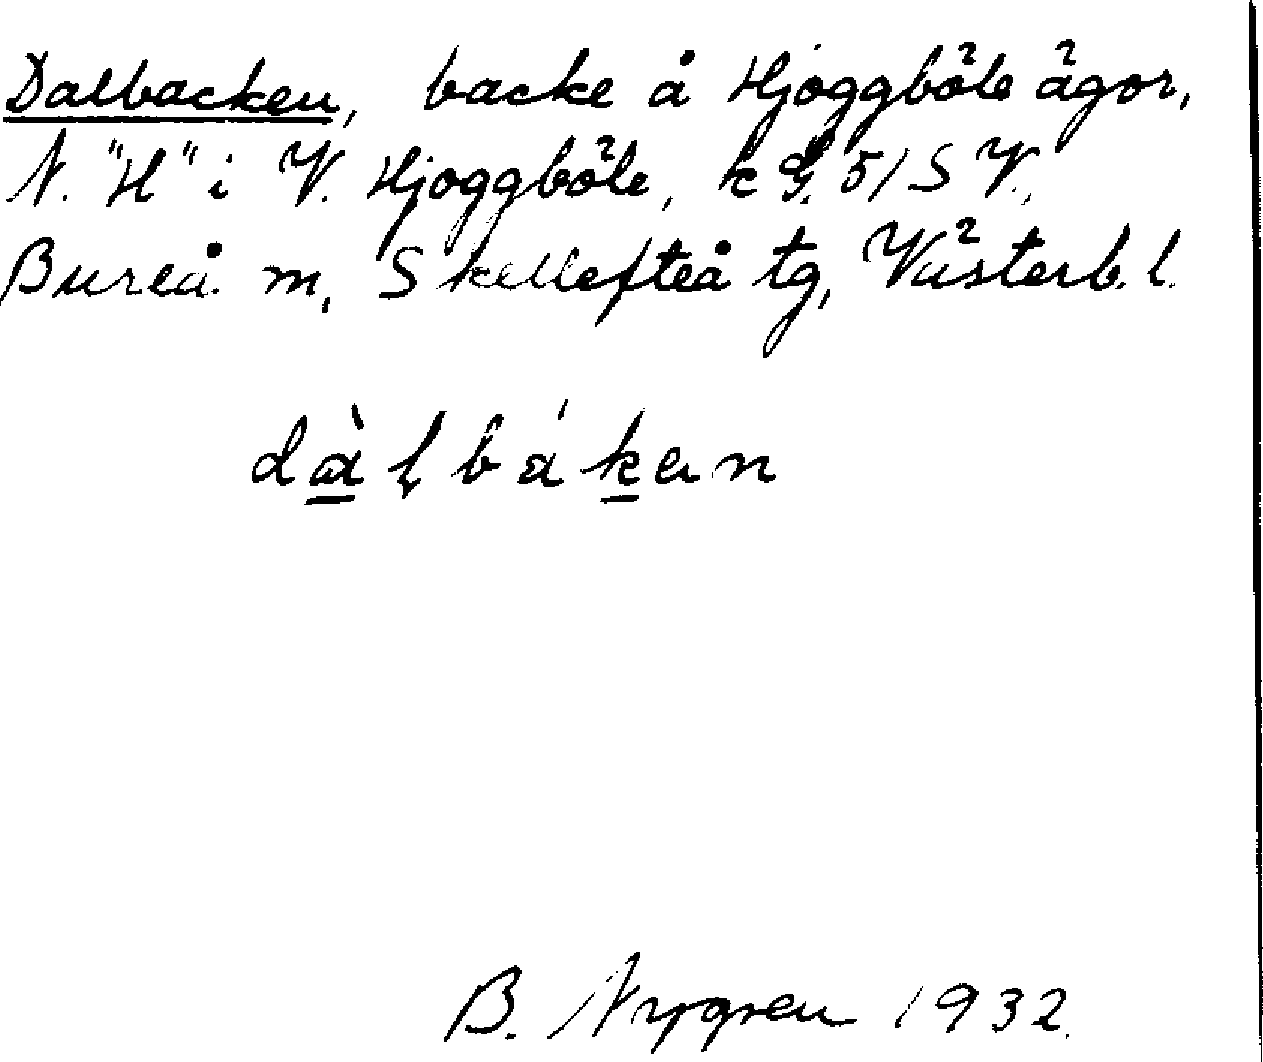 Dalbacken, backe å Hjoggböle ägor,
N. "H" i V. Hjoggböle, kg. 51 SV,
Bureå m, Skellefteå tg, Västerb. l.
dàḷbákan
B. Nygren 1932.